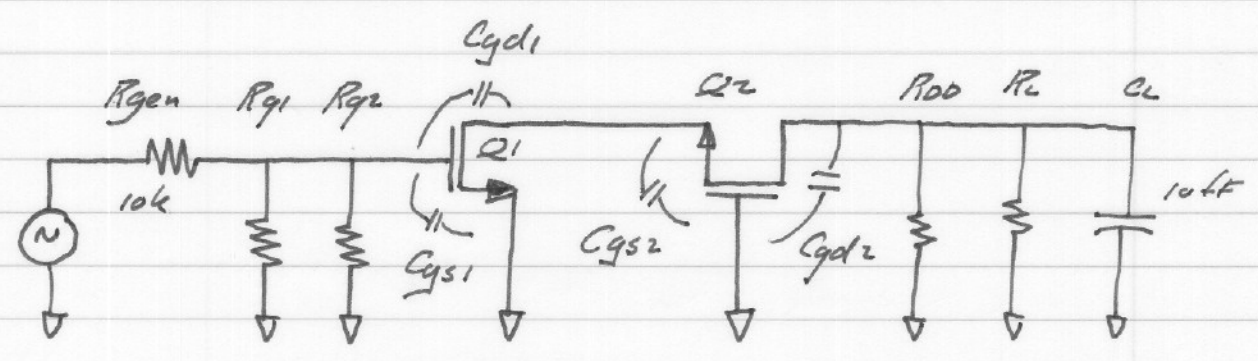 Cgd1
Rgen Rg1 Rg2 Q2 RDD RL CL
Q1
10k 10fF
Cgs1 Cgs2 Cgd2